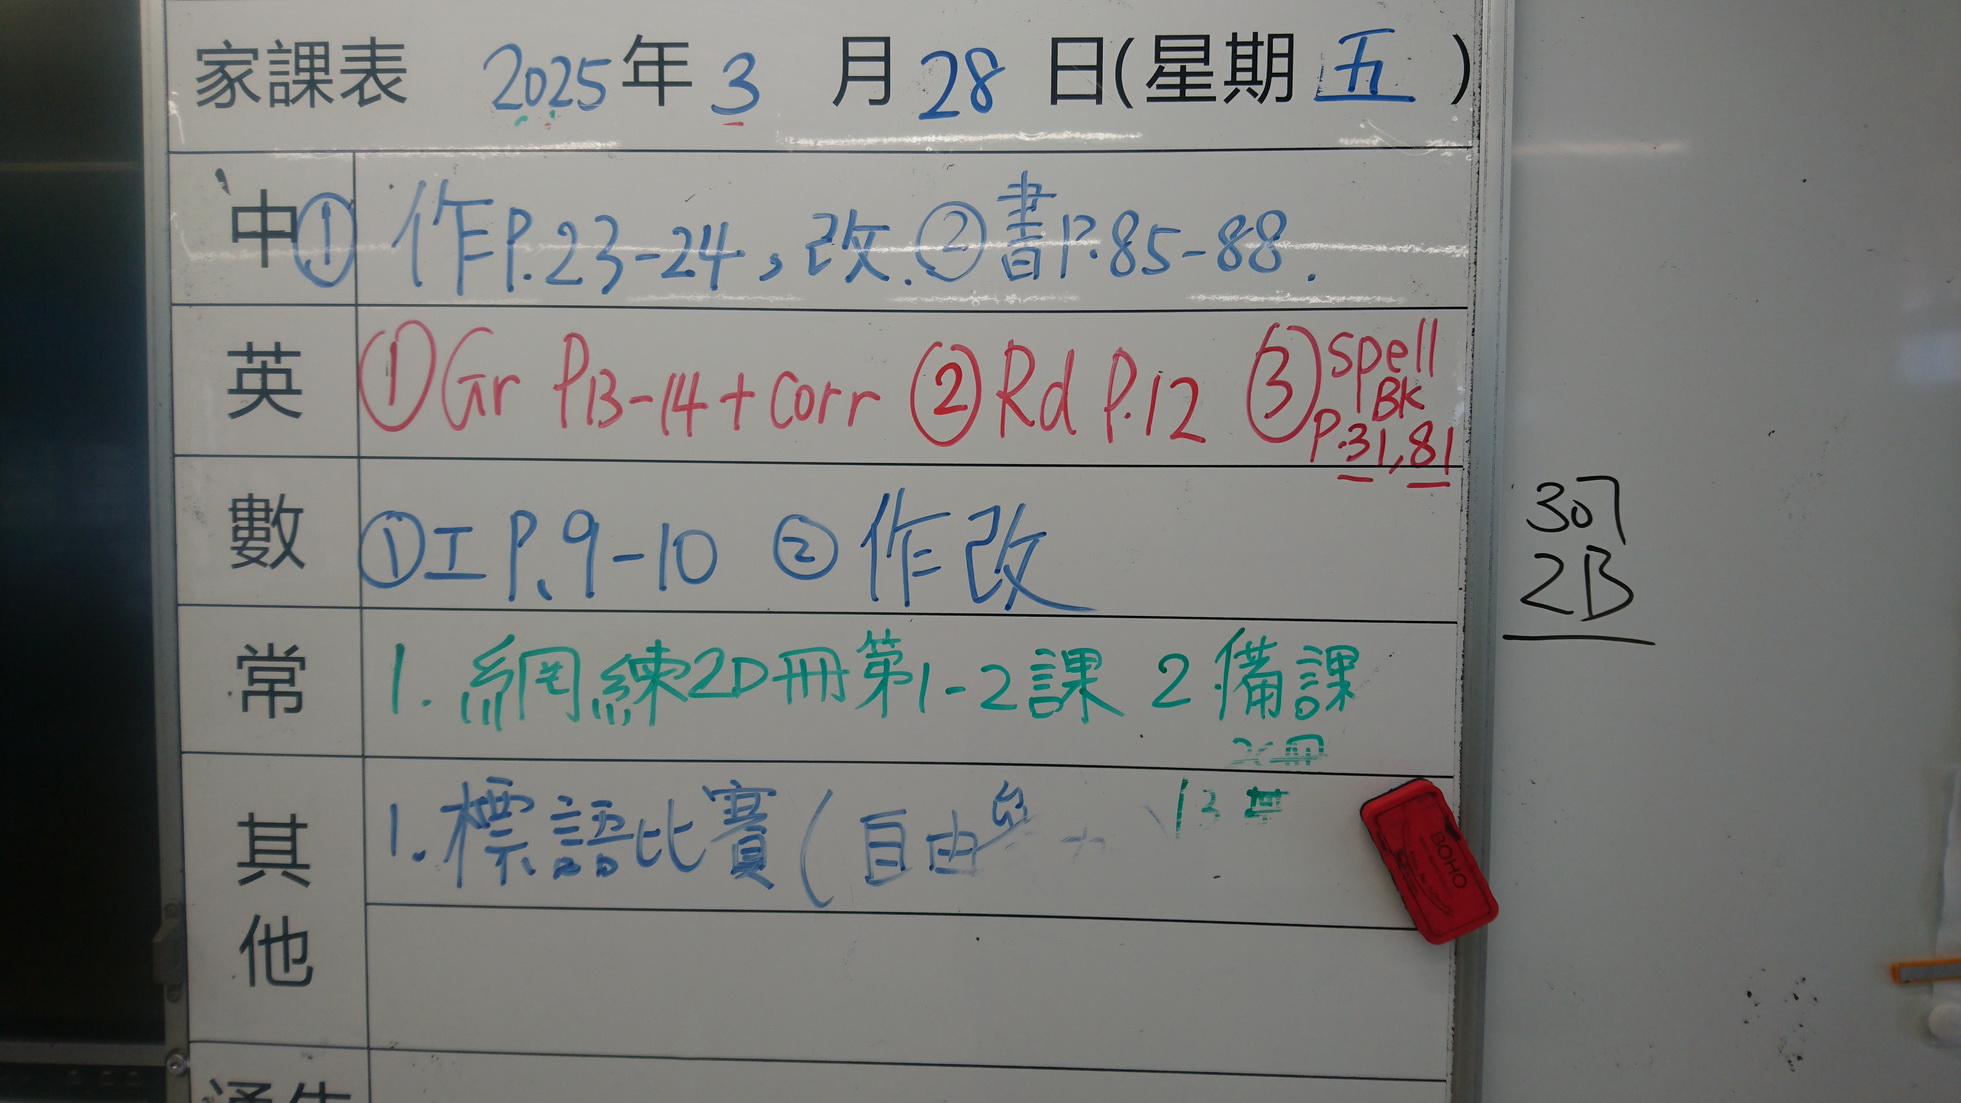 家課表 2025年3月28日(星期五)
中 ① 作P.23-24，改. ② 書P.85-88.
英 ① Gr P13-14 + corr ② Rd P.12 ③ Spell
BK
P.31,81
數 ① 工P.9-10 ② 作改
常 1. 網練2D冊第1-2課 2 備課
其他 1. 標語比賽(自由
13
BOHO
307
2B